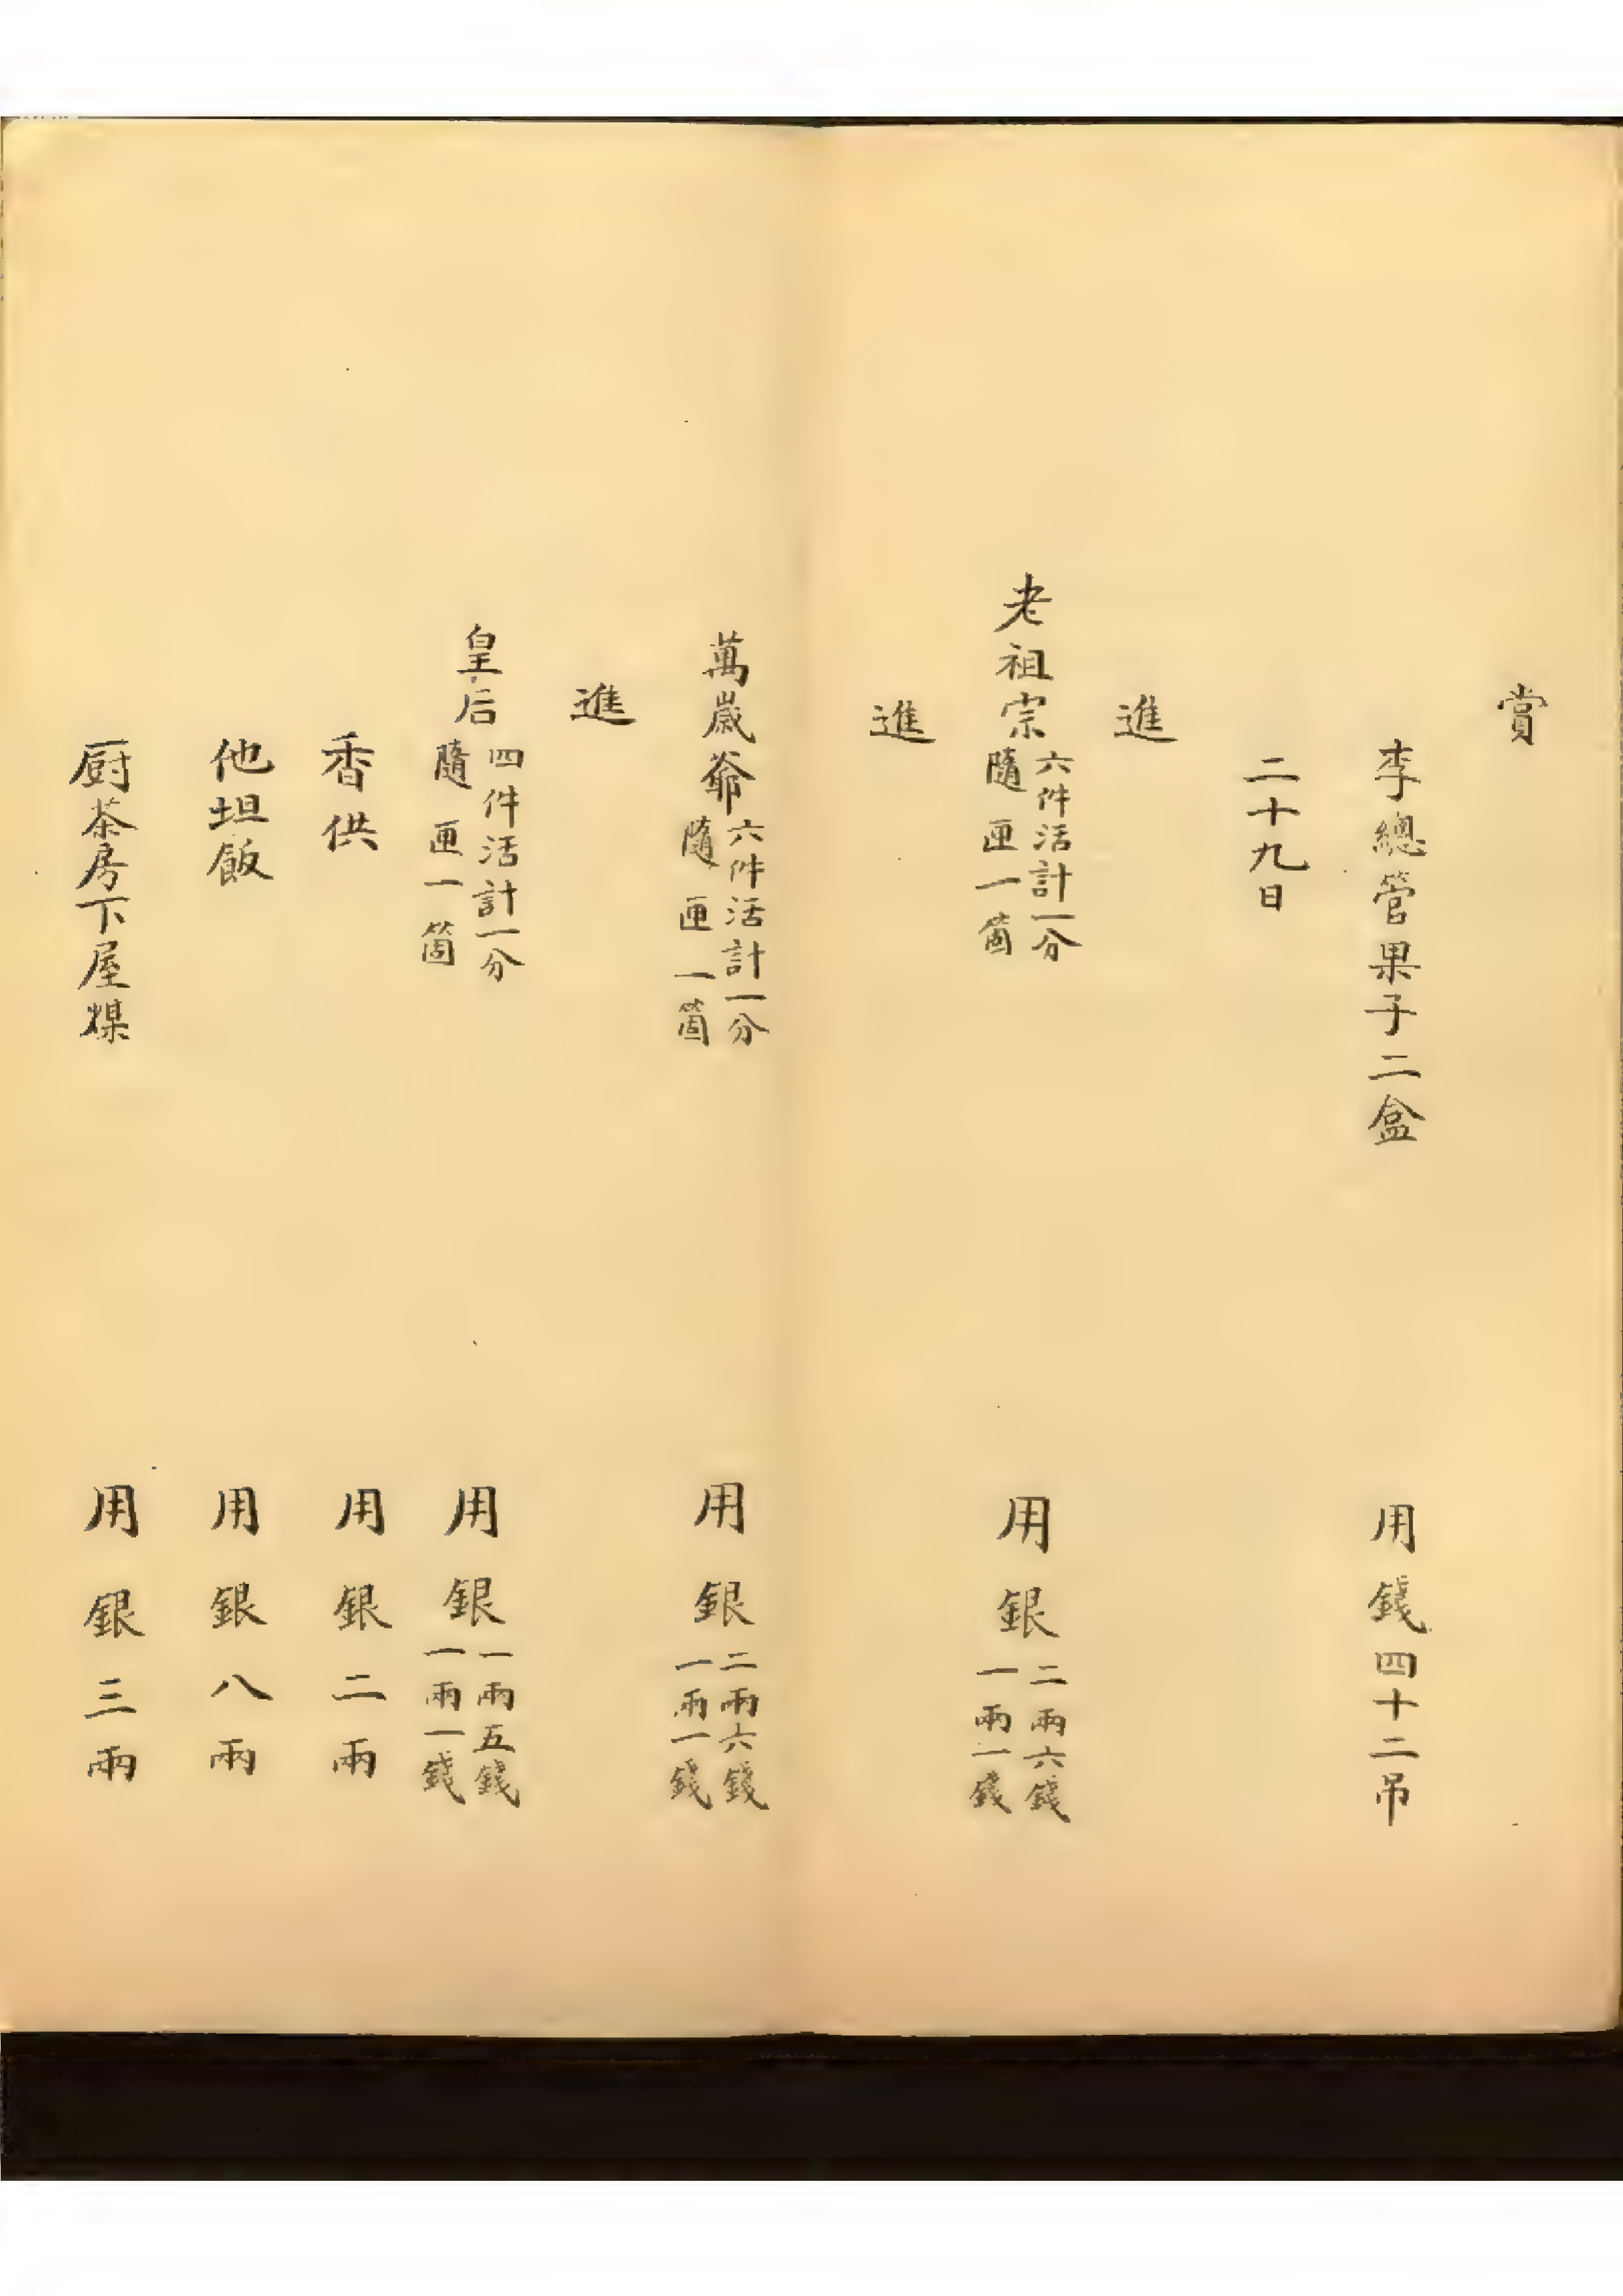 賞
李總管果子二盒 用錢四十二吊
二十九日
進
老祖宗 六件活計一分 隨匣一箇 用銀 二兩六錢 一兩一錢
進
萬歲爺 六件活計一分 隨匣一箇 用銀 二兩六錢 一兩一錢
進
皇后 四件活計一分 隨匣一箇 用銀 一兩五錢 一兩一錢
香供 用銀二兩
他坦飯 用銀八兩
厨茶房下屋煤 用銀三兩